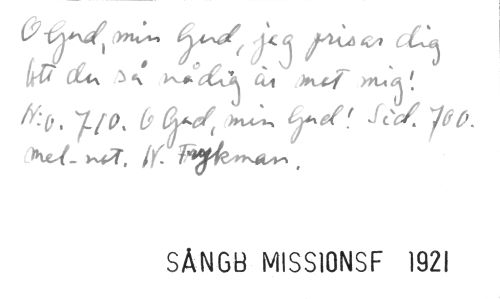 O Gud, min Gud, jag prisar dig
Att du så nådig är mot mig!
N:o. 710. O Gud, min Gud! Sid. 700.
mel.-not. N. Frykman.
SÅNGB MISSIONSF 1921